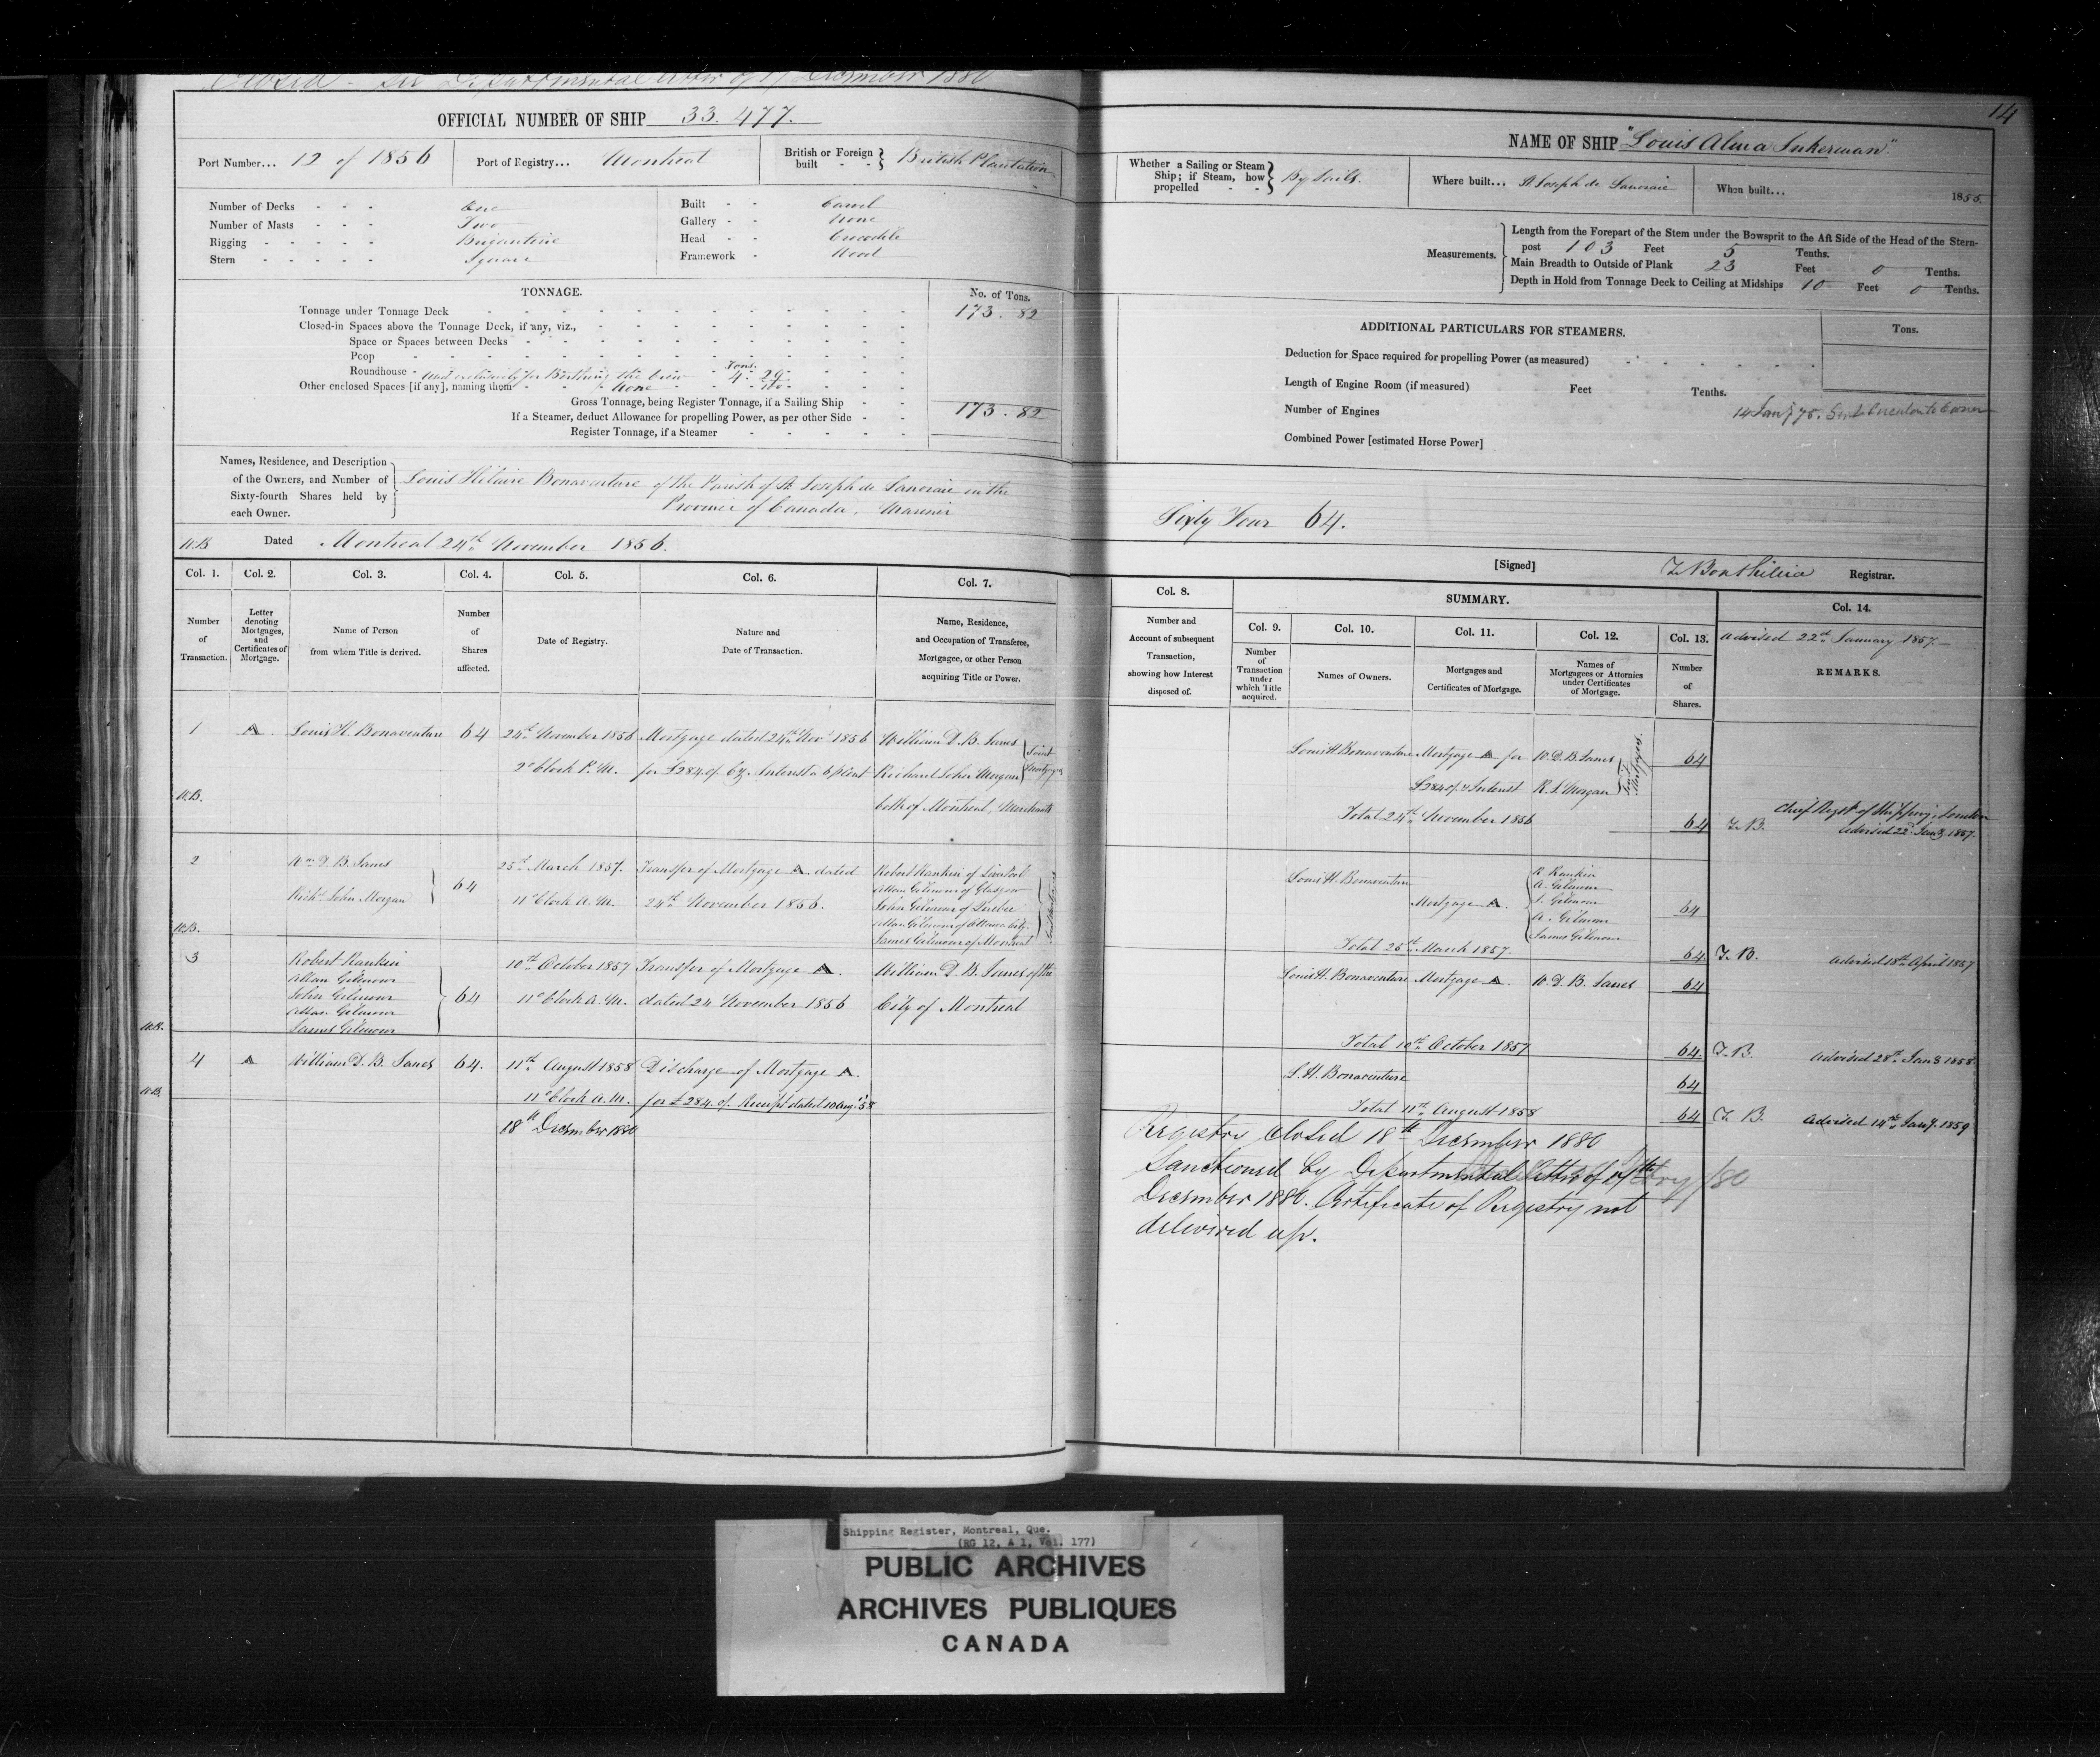 Closed - see Departmental letter of 17 December 1880
OFFICIAL NUMBER OF SHIP 33.477.
Port Number... 12 of 1856 Port of Registry... Montreal British or Foreign built - - British Plantation
Number of Decks - - - One Built - - Carvel
Number of Masts - - - Two Gallery - - None
Rigging - - - - - Brigantine Head - - Crocodile
Stern - - - - - Square Framework - Wood
TONNAGE. No. of Tons.
Tonnage under Tonnage Deck 173.82
Closed-in Spaces above the Tonnage Deck, if any, viz.,
Space or Spaces between Decks
Poop
Roundhouse - used exclusively for Berthing the crew Tons. 4.29
Other enclosed Spaces [if any], naming them None
Gross Tonnage, being Register Tonnage, if a Sailing Ship 173.82
If a Steamer, deduct Allowance for propelling Power, as per other Side
Register Tonnage, if a Steamer
Names, Residence, and Description of the Owners, and Number of Sixty-fourth Shares held by each Owner.
Louis Hilaire Bonaventure of the Parish of St. Joseph de Lanoraie in the
Province of Canada. Mariner
Dated Montreal 24th November 1856.
Col. 1. Col. 2. Col. 3. Col. 4. Col. 5. Col. 6. Col. 7.
Number of Transaction.
Letter denoting Mortgages, and Certificates of Mortgage.
Name of Person from whom Title is derived.
Number of Shares affected.
Date of Registry.
Nature and Date of Transaction.
Name, Residence, and Occupation of Transferee, Mortgagee, or other Person acquiring Title or Power.
1 A Louis H. Bonaventure 64 24th November 1856 Mortgage dated 24th Nov. 1856 William D. B. Janes
2 o'Clock P.M. for £284. Interest 6 pCent Richard John Morgan Joint Mortgagees
both of Montreal, Merchants
2 Wm D. B. Janes 64 25th March 1857. Transfer of Mortgage A dated Robert Rankin of Liverpool
Allan Gilmour of Glasgow
Richd John Morgan 11 o'Clock A.M. 24th November 1856. John Gilmour of Quebec
Allan Gilmour of Ottawa City
James Gilmour of Montreal
3 Robert Rankin 10th October 1857 Transfer of Mortgage A. William D. B. Janes of the
Allan Gilmour
John Gilmour 64 11 o'Clock A.M. dated 24 November 1856 City of Montreal
Allan Gilmour
James Gilmour
4 A William D. B. Janes 64. 11th August 1858 Discharge of Mortgage A.
11 o'Clock A.M. for £284. Receipt dated 10 Aug. '58
18th December 1880
14
NAME OF SHIP "Louis Alma Inkerman"
Whether a Sailing or Steam Ship; if Steam, how propelled - - By Sails. Where built... St Joseph de Lanoraie When built... 1855.
Measurements.
Length from the Forepart of the Stem under the Bowsprit to the Aft Side of the Head of the Stern-
post 103 Feet 5 Tenths.
Main Breadth to Outside of Plank 23 Feet 0 Tenths.
Depth in Hold from Tonnage Deck to Ceiling at Midships 10 Feet 0 Tenths.
ADDITIONAL PARTICULARS FOR STEAMERS. Tons.
Deduction for Space required for propelling Power (as measured)
Length of Engine Room (if measured) Feet Tenths.
Number of Engines 14 Jany 75. Sent Circular to Owner
Combined Power [estimated Horse Power]
Sixty Four 64.
[Signed] Registrar.
Col. 8. SUMMARY. Col. 14.
Number and Account of subsequent Transaction, showing how Interest disposed of.
Col. 9. Col. 10. Col. 11. Col. 12. Col. 13. Advised 22nd January 1857
Number of Transaction under which Title acquired.
Names of Owners.
Mortgages and Certificates of Mortgage.
Names of Mortgagees or Attornies under Certificates of Mortgage.
Number of Shares.
REMARKS.
Louis H. Bonaventure Mortgage A for W. D. B. Janes 64
£284 & Interest R. J. Morgan Joint Mortgagees.
Total 24th November 1856 64 Chief Regr of Shipping, London
Advised 22d Jany 1857.
Louis H. Bonaventure R. Rankin
A. Gilmour
Mortgage A. J. Gilmour 64
A. Gilmour
James Gilmour
Total 25th March 1857. 64 Advised 18th April 1857
Louis H. Bonaventure Mortgage A. W. D. B. Janes 64
Total 10th October 1857 64. Advised 28th Jany 1858
L. H. Bonaventure 64
Total 11th August 1858 64 Advised 14th Jany. 1859
Registry Closed 18th December 1880
Sanctioned by Departmental letter of 17th
December 1880. Certificate of Registry not
delivered up.
Shipping Register, Montreal, Que.
(RG 12, A 1, Vol. 177)
PUBLIC ARCHIVES
ARCHIVES PUBLIQUES
CANADA